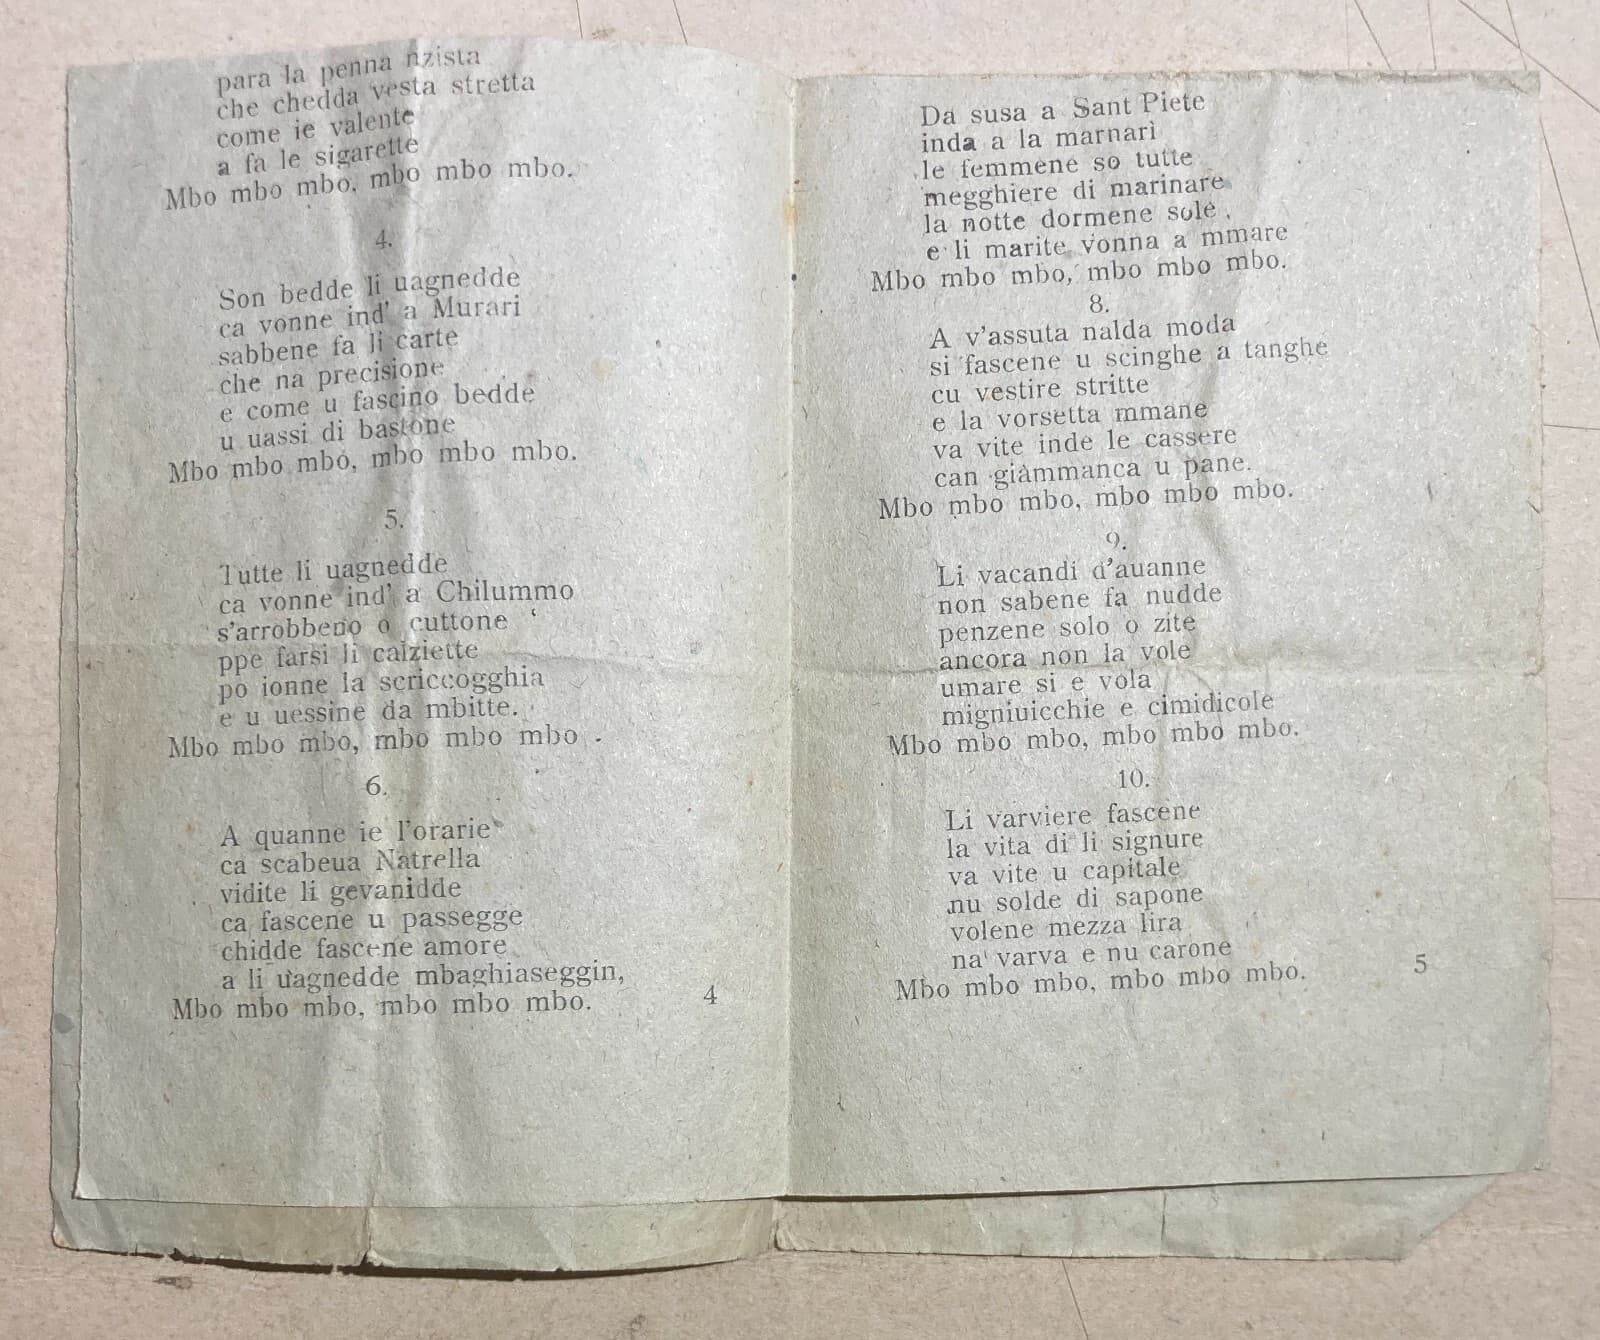 para la penna nzista
che chedda vesta stretta
come ie valente
a fa le sigarette
Mbo mbo mbo, mbo mbo mbo.
4.
Son bedde li uagnedde
ca vonne ind' a Murari
sabbene fa li carte
che na precisione
e come u fascino bedde
u uassi di bastone
Mbo mbo mbo, mbo mbo mbo.
5.
Tutte li uagnedde
ca vonne ind' a Chilummo
s'arrobbeno o cuttone
ppe farsi li calziette
po ionne la scriccogghia
e u uessine da mbitte.
Mbo mbo mbo, mbo mbo mbo .
6.
A quanne ie l'orarie
ca scabeua Natrella
vidite li gevanidde
ca fascene u passegge
chidde fascene amore
a li uagnedde mbaghiaseggin,
Mbo mbo mbo, mbo mbo mbo.
4
Da susa a Sant Piete
inda a la marnarì
le femmene so tutte
megghiere di marinare
la notte dormene sole ,
e li marite vonna a mmare
Mbo mbo mbo, mbo mbo mbo.
8.
A v'assuta nalda moda
si fascene u scinghe a tanghe
cu vestire stritte
e la vorsetta mmane
va vite inde le cassere
can giammanca u pane.
Mbo mbo mbo, mbo mbo mbo.
9.
Li vacandi d'auanne
non sabene fa nudde
penzene solo o zite
ancora non la vole
umare si e vola
migniuicchie e cimidicole
Mbo mbo mbo, mbo mbo mbo.
10.
Li varviere fascene
la vita di li signure
va vite u capitale
nu solde di sapone
volene mezza lira
na' varva e nu carone
Mbo mbo mbo, mbo mbo mbo.
5